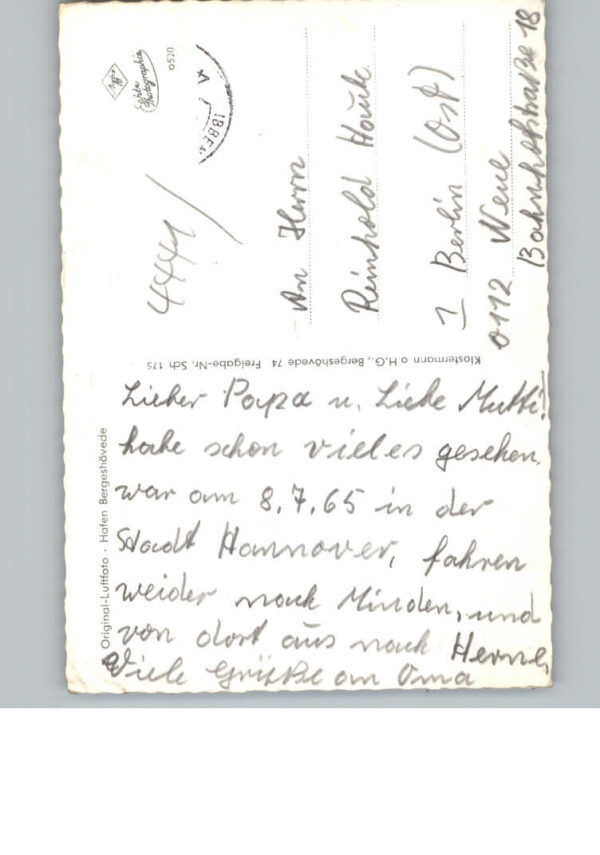 Lieber Papa u. Liebe Mutti!
habe schon vieles gesehen.
war am 8.7.65 in der
Stadt Hannover, fahren
weider nach Minden, und
von dort aus nach Herne,
Viele Grüße an Oma
Original-Luftfoto · Hafen Bergeshövede
Klostermann o H.G., Bergeshövede 74 Freigabe-Nr. Sch 175
Agfa
Echte
Photographie
0520
IBBEN
4441
An Herrn
Reinhold
1 Berlin (Ost)
0112
Bahnhofstraße 18